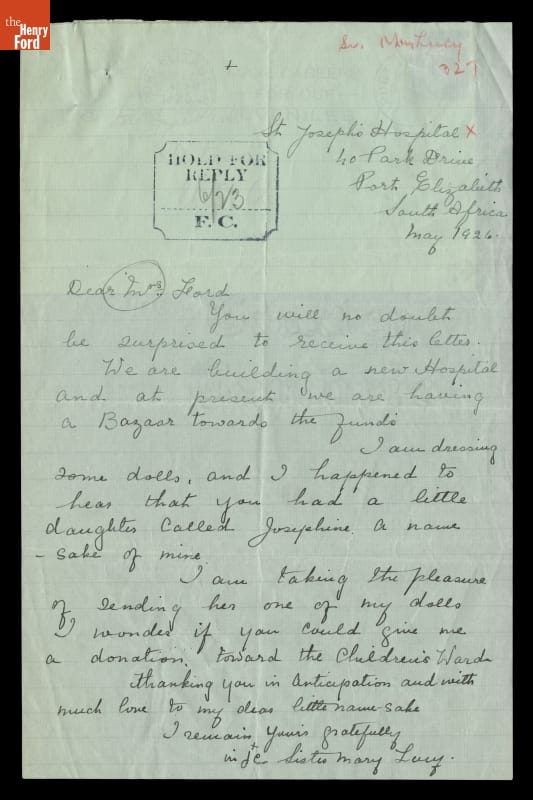 the
Henry
Ford
327
St Joseph's Hospital x
40 Park Drive
Port Elizabeth
South Africa
May 1926.
HOLD FOR
REPLY
6/23
F. C.
Dear Mrs. Ford
You will no doubt
be surprised to receive this letter.
We are building a new Hospital
and at present we are having
a Bazaar towards the funds
I am dressing
some dolls, and I happened to
hear that you had a little
daughter called Josephine. a name
- sake of mine
I am taking the pleasure
of sending her one of my dolls
I wonder if you could give me
a donation toward the Children's Ward
thanking you in anticipation and with
much love to my dear little name-sake
I remain yours gratefully
in Sister Mary Lucy.